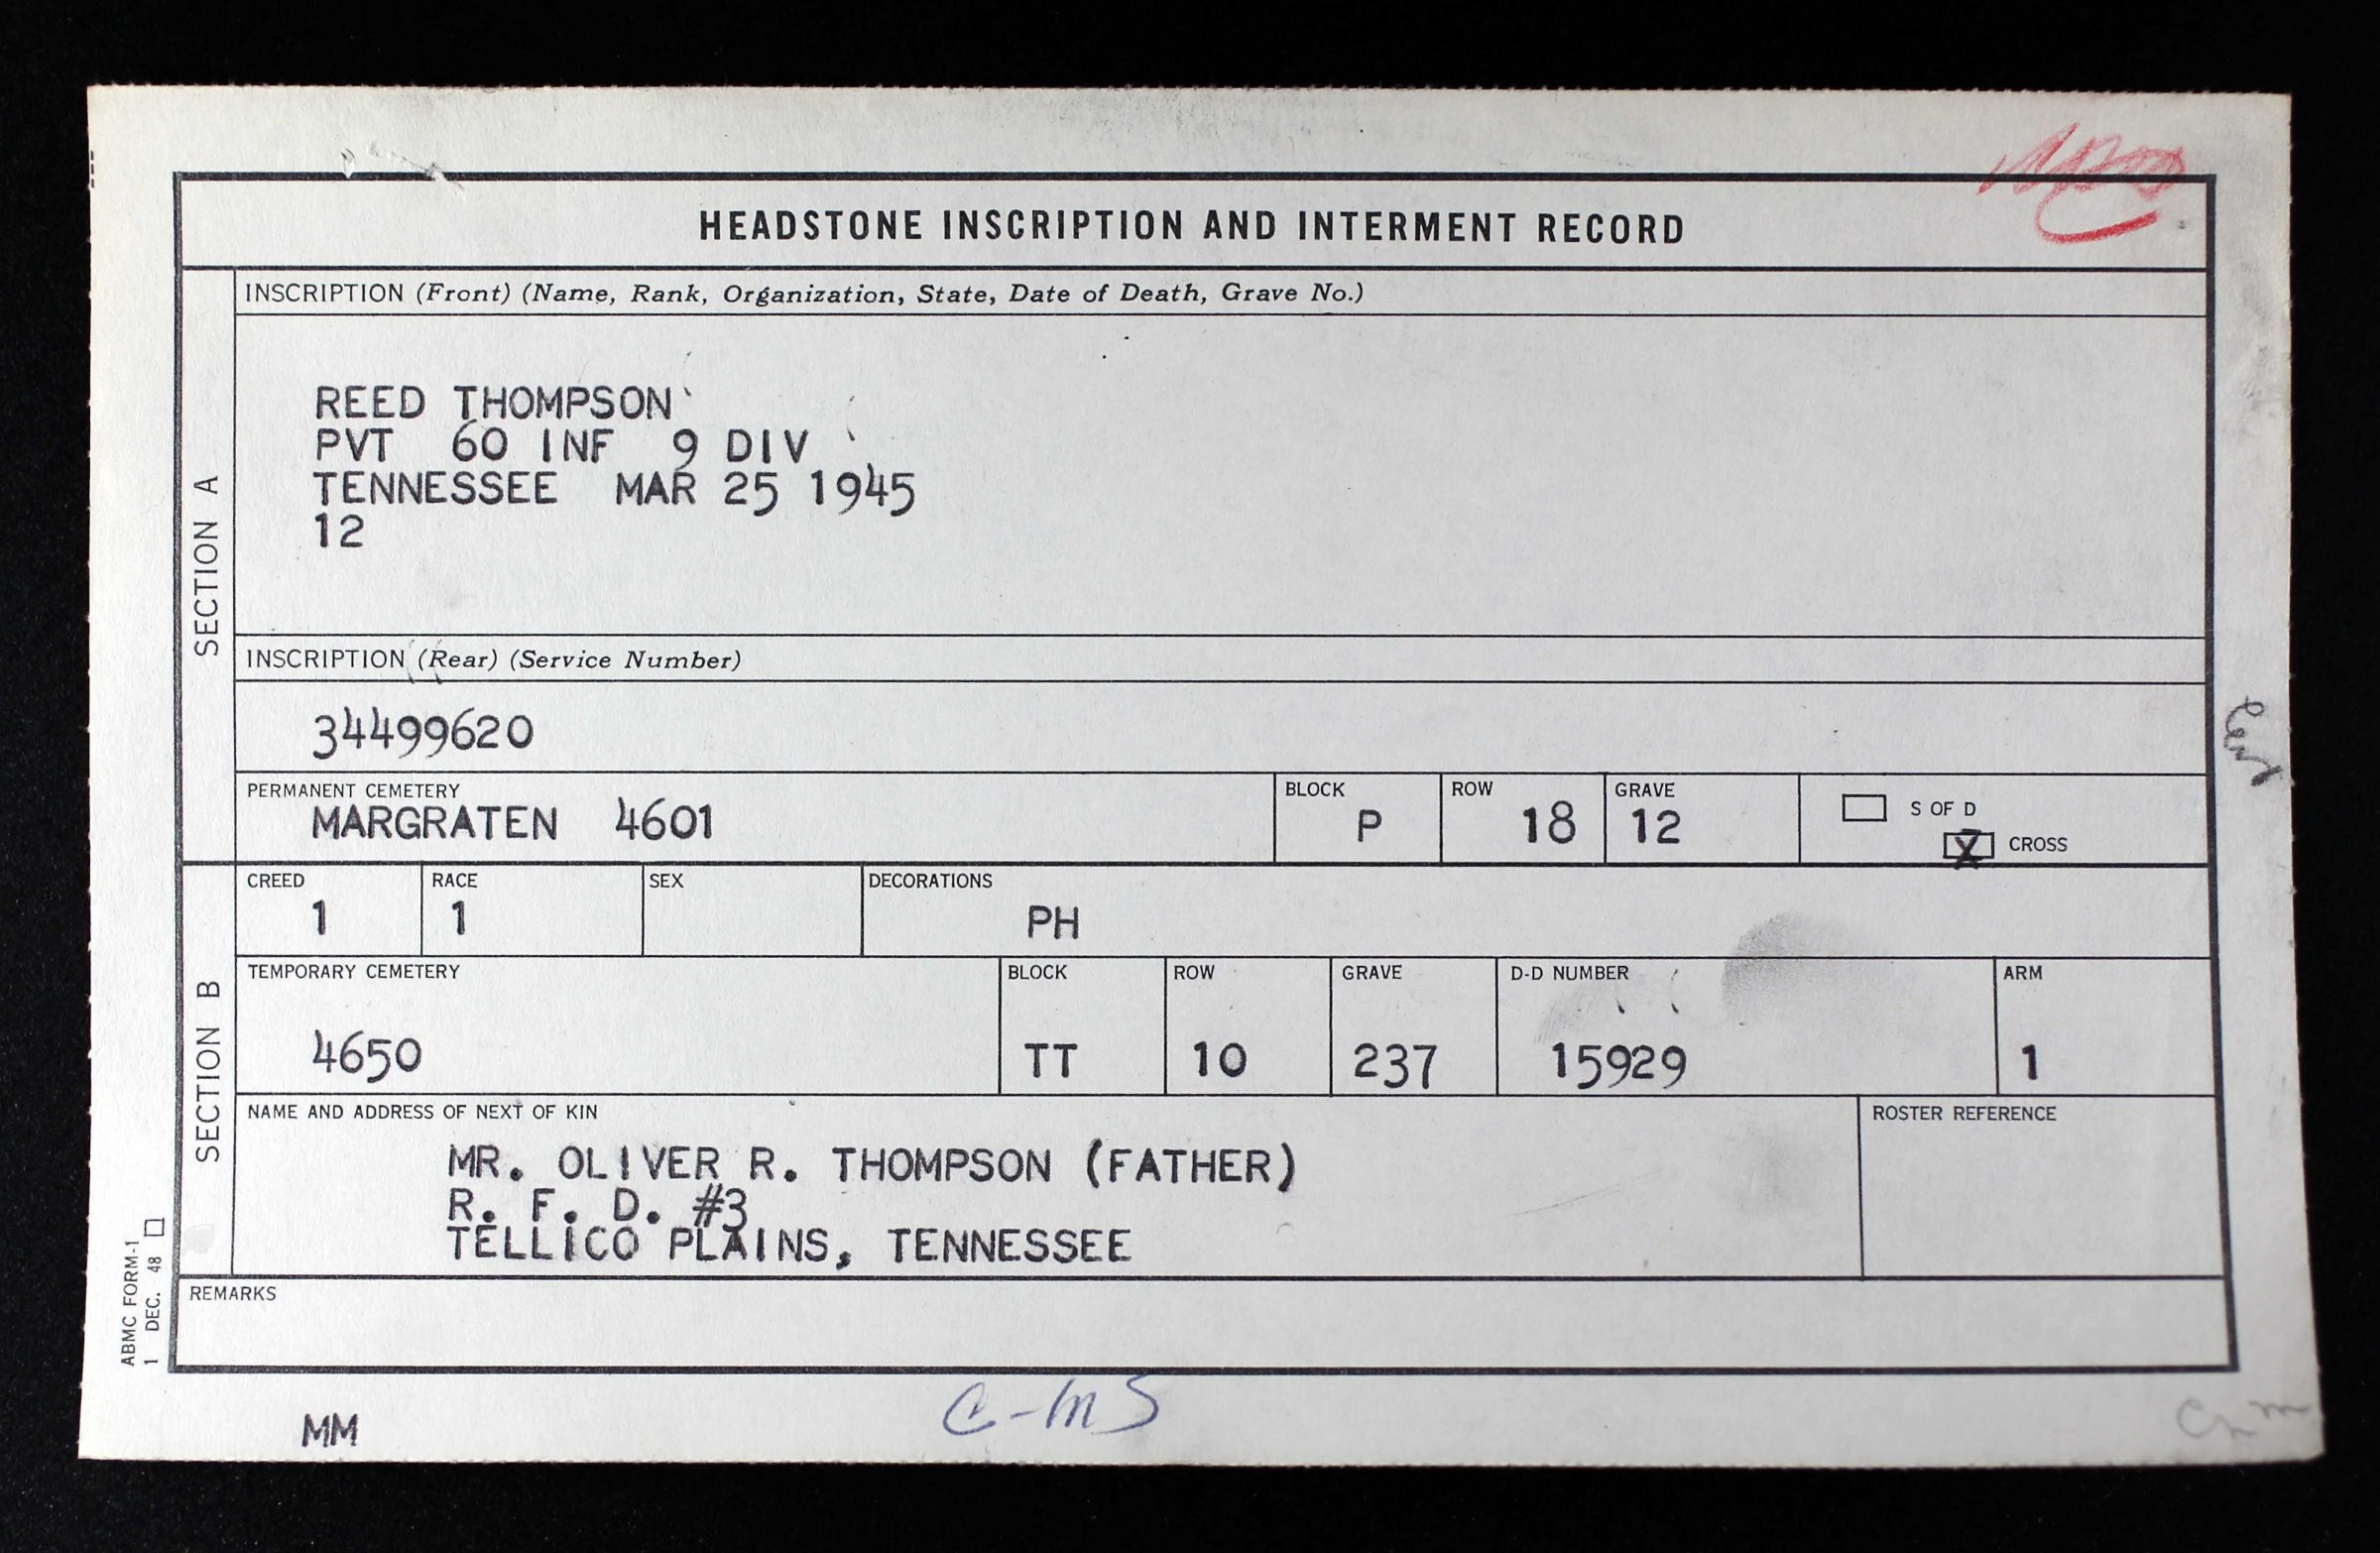 HEADSTONE INSCRIPTION AND INTERMENT RECORD
SECTION A
INSCRIPTION (Front) (Name, Rank, Organization, State, Date of Death, Grave No.)
REED THOMPSON
PVT 60 INF 9 DIV
TENNESSEE MAR 25 1945
12
INSCRIPTION (Rear) (Service Number)
34499620
PERMANENT CEMETERY
MARGRATEN 4601
BLOCK
P
ROW
18
GRAVE
12
S OF D
X CROSS
SECTION B
CREED
1
RACE
1
SEX
DECORATIONS
PH
TEMPORARY CEMETERY
4650
BLOCK
TT
ROW
10
GRAVE
237
D-D NUMBER
15929
ARM
1
NAME AND ADDRESS OF NEXT OF KIN
MR. OLIVER R. THOMPSON (FATHER)
R. F. D. #3
TELLICO PLAINS, TENNESSEE
ROSTER REFERENCE
REMARKS
ABMC FORM-1
1 DEC. 48
MM
C-MS